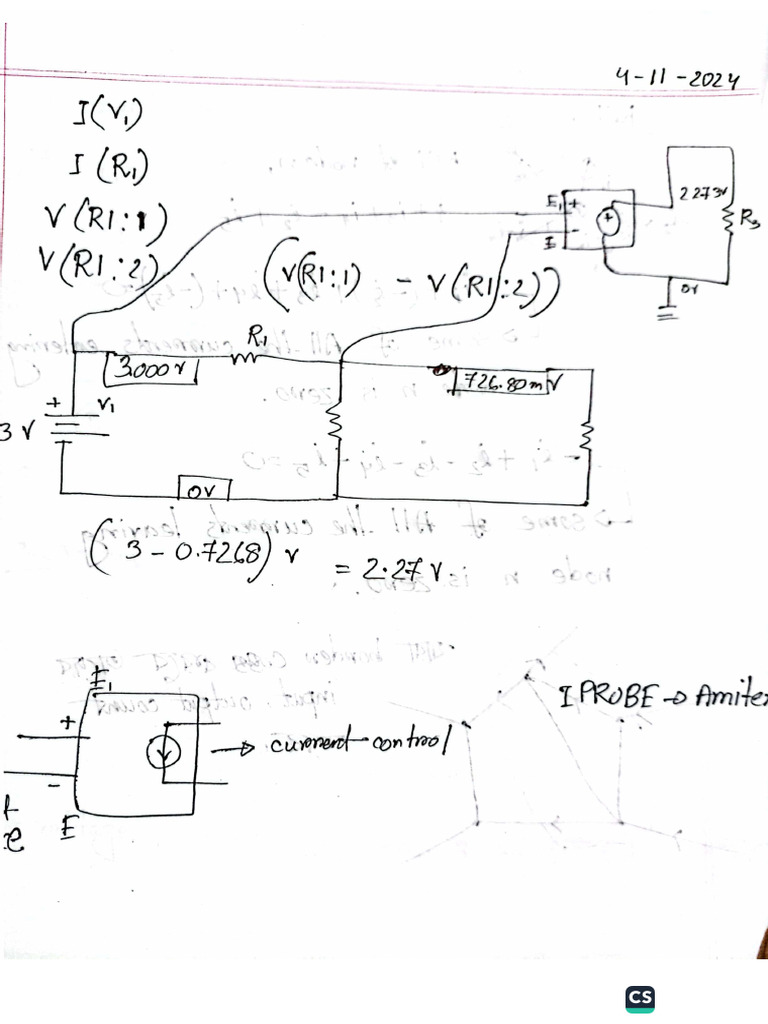 4-11-2024
I(V₁)
I(R₁)
V(R1:1)
V(R1:2)
(V(R1:1) - V(R1:2))
E₁ +
E -
+
2.273V
R₃
0V
R₁
3.000V
726.80mV
+ V₁
3 V
0V
(3 - 0.7268) V = 2.27 V
E₁
+
-
E
→ current control
I PROBE → Amiter
CS